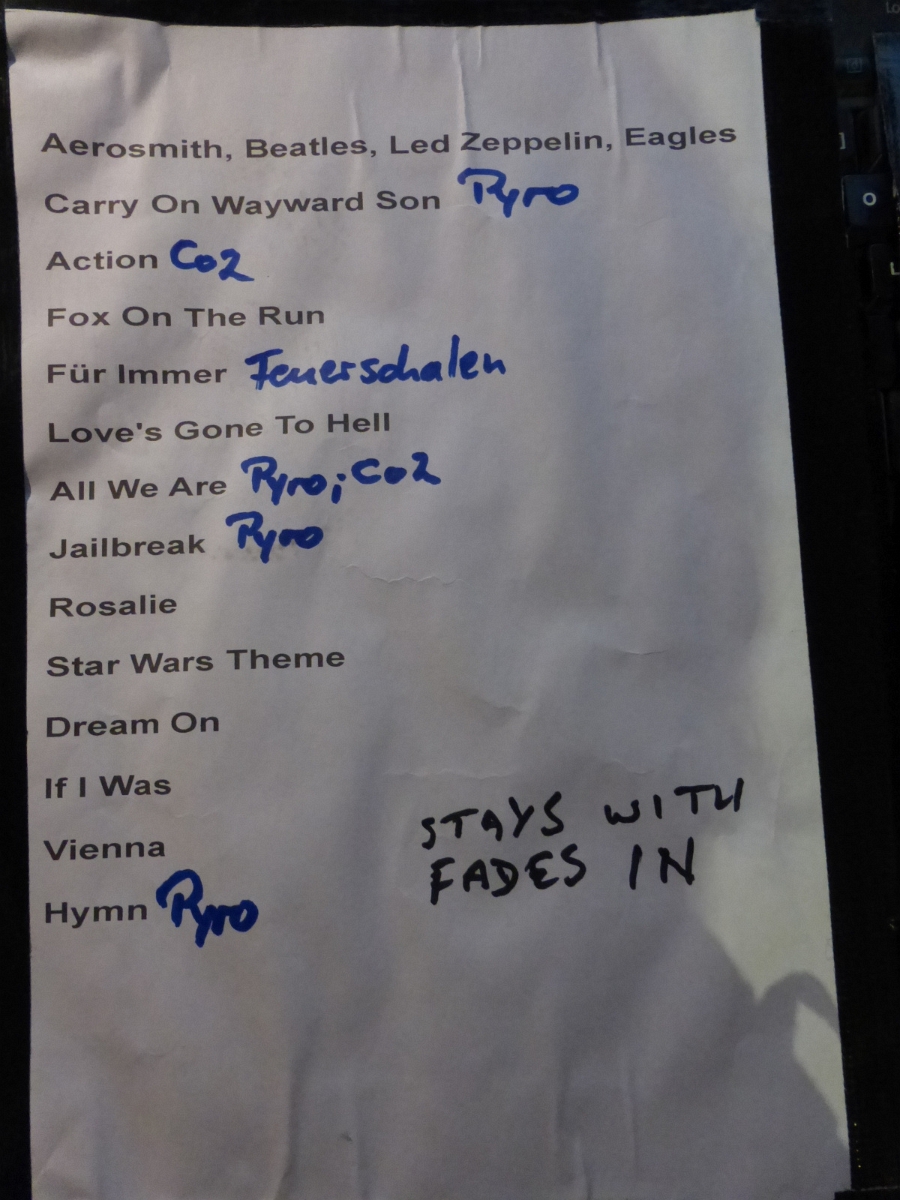 Aerosmith, Beatles, Led Zeppelin, Eagles
Carry On Wayward Son Pyro
Action Co2
Fox On The Run
Für Immer Feuerschalen
Love's Gone To Hell
All We Are Pyro; Co2
Jailbreak Pyro
Rosalie
Star Wars Theme
Dream On
If I Was
Vienna
Hymn Pyro
STAYS WITH
FADES IN
O
L